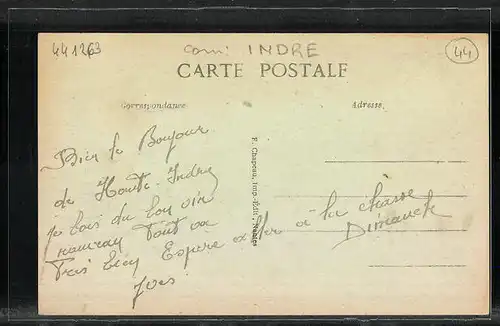 441263
com: INDRE
44
CARTE POSTALE
Correspondance
Adresse
Bien le Bonjour
de Haute-Indre
je bois du bon vin
nouveau Tout va
Très bien Espère aller à la chasse
Dimanche
F. Chapeau, Imp.-Édit., Nantes